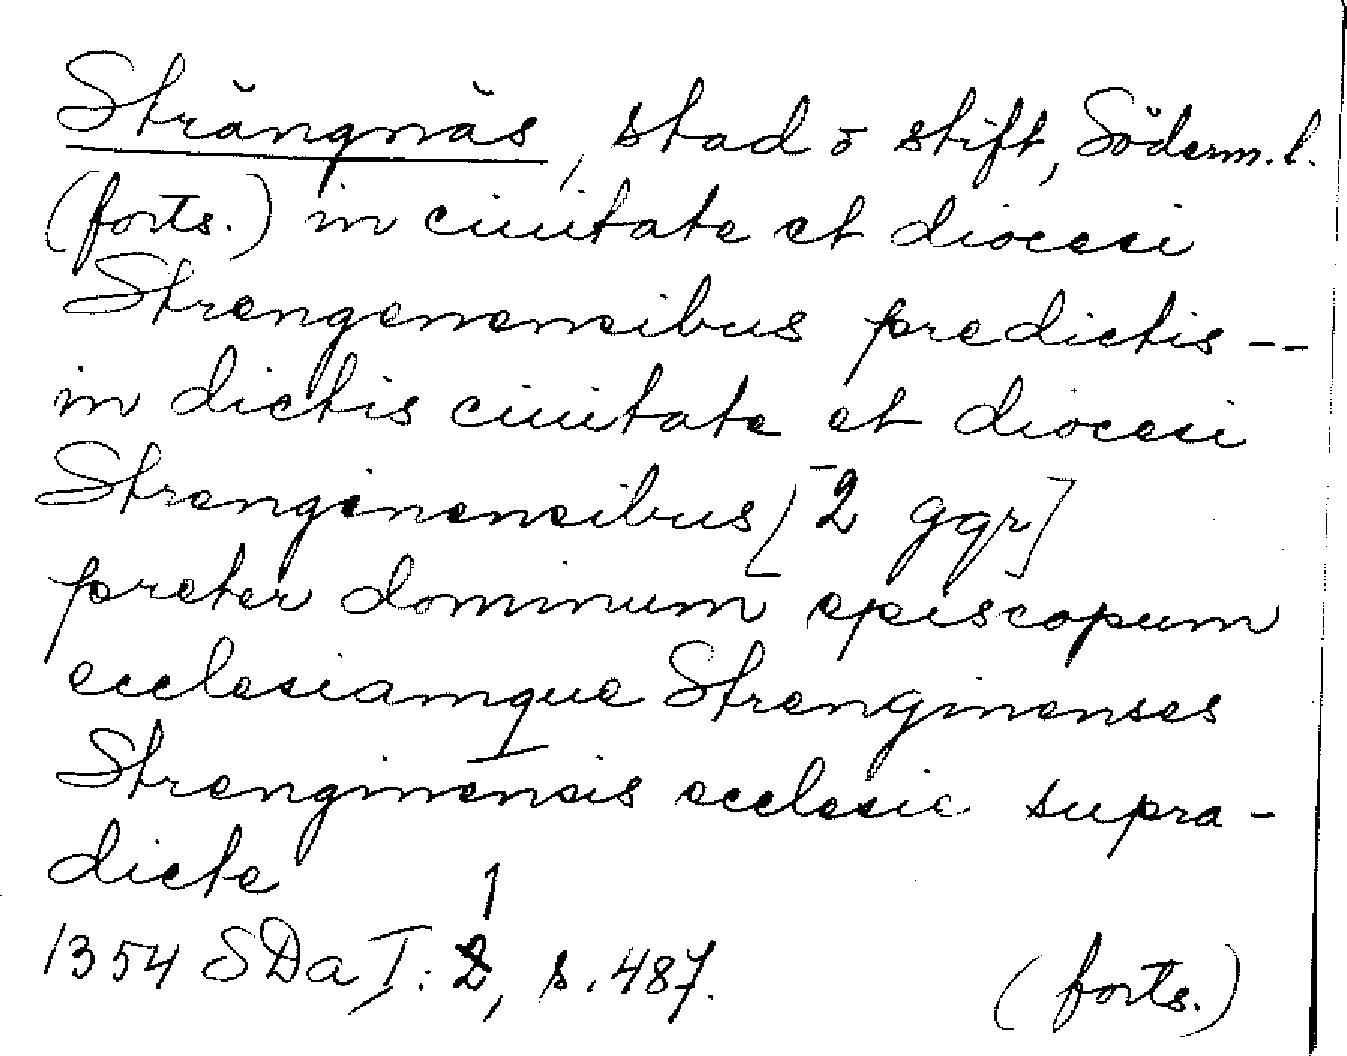 Strängnäs, stad o stift, Söderm. l.
(forts.) in ciuitate et diocesi
Strengenensibus predictis --
in dictis ciuitate et diocesi
Strenginensibus [2 ggr]
preter dominum episcopum
ecclesiamque Strenginenses
Strenginensis ecclesie supra-
dicte
1
1354 SDa I: 2, s. 487. (forts.)